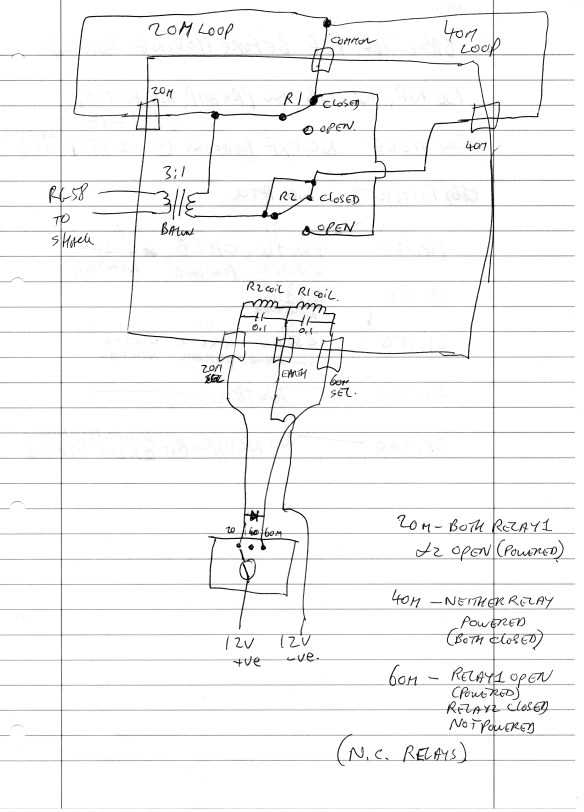 20M LOOP
COMMON
40M
LOOP
20M
R1
CLOSED
OPEN.
40M
3:1
RG58
TO
SHACK
BALUN
R2
CLOSED
OPEN
R2 COIL
R1 COIL.
0.1
0.1
20M
SEL
EARTH
60M
SEL.
20
40
60M
12V
+VE
12V
-VE.
20M - BOTH RELAY 1
&2 OPEN (POWERED)
40M - NEITHER RELAY
POWERED
(BOTH CLOSED)
60M - RELAY 1 OPEN
(POWERED)
RELAY 2 CLOSED
NOT POWERED
(N.C. RELAYS)